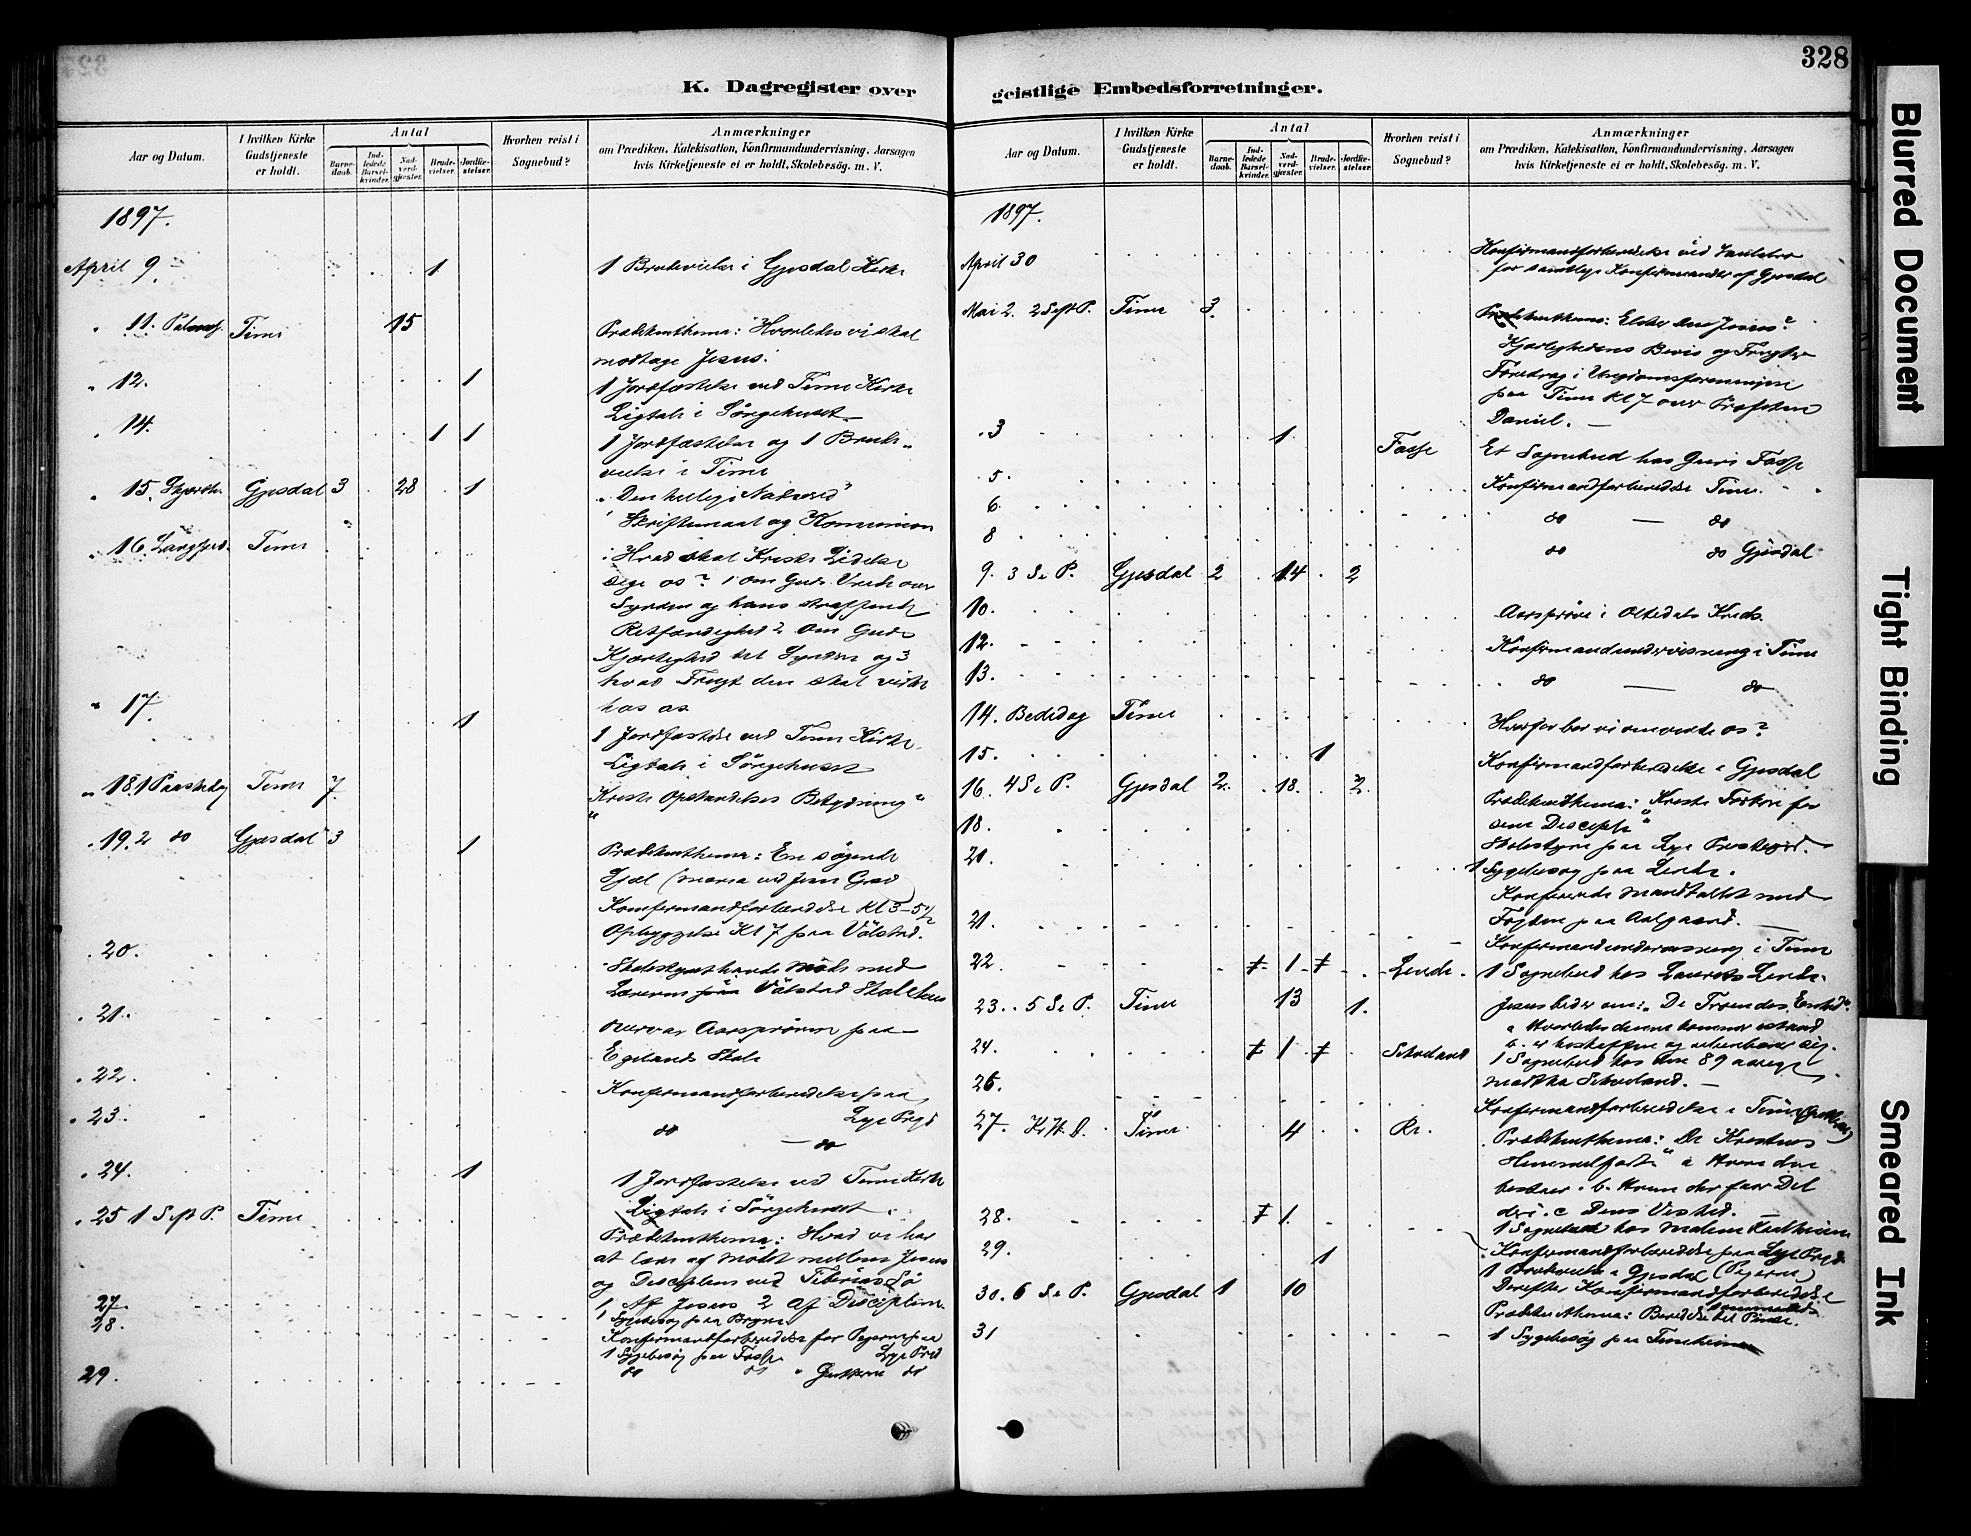 328
K. Dagregister over
geistlige Embedsforretninger.
Aar og Datum.
I hvilken Kirke Gudstjeneste er holdt.
Antal
Barnedaab.
Indledede Barselkvinder.
Nadverdgjester.
Brudevielser.
Jordfæstelser.
Hvorhen reist i Sognebud?
Anmærkninger
om Prædiken, Katekisation, Konfirmandundervisning, Aarsagen
hvis Kirketjeneste ei er holdt, Skolebesøg. m. V.
1897.
April 9. 1 1 Brudevielse i Gjesdal Kirke
" 11. Palmes. Time 15 Prædikenthema: Hvorledes vi skal
modtage Jesus.
" 12. 1 1 Jordfæstelse ved Time Kirke
Ligtale i Sörgehuset
" 14. 1 1 1 Jordfæstelse og 1 Brude-
vielse i Time
" 15. Skjærth. Gjesdal 3 28 1 "Den hellige Nadverd"
Skriftemaal og Kommunion
" 16. Langfred. Time Hvad skal Kristi Lidelse
sige os? 1 om Guds Vrede over
Synden og hans straffende
Retfærdighed 2 Om Guds
Kjærlighed til Synderen og 3
hvad Frugt den skal virke
hos os
" 17. 1 1 Jordfæstelse ved Time Kirke
Ligtale i Sörgehuset
" 18. 1 Paaskedag Time 7. Kristi Opstandelses Betydning"
" 19. 2 do Gjesdal 3 1 Prædikenthema: En søgende
Sjæl (Maria ved Jesu Grav)
Konfirmandforberedelse Kl 3-5½
Opbyggelse Kl 7 paa Vålstad.
" 20. Skolestyret havde Møde med
Læreren paa Vålstad Skolehus
" 21. overvar Aarsprøven paa
Egelands Skole
" 22. Konfirmandforberedelse paa
Lye Prgd
" 23. do — do
" 24. 1 1 Jordfæstelse ved Time Kirke
Ligtale i Sörgehuset
" 25 1 S eft P. Time Prædikenthema: Hvad vi har
at lære af Mødet mellem Jesus
og Disciplene ved Tiberias Sø
1. Af Jesus 2 Af Disciplene
27. 1 Sygebesøg paa Bryne
28. Konfirmandforberedelse for Pigerne paa
1 Sygebesøg paa Fosse Lye Prgd
29. do do " Gutterne do
Aar og Datum.
I hvilken Kirke Gudstjeneste er holdt.
Antal
Barnedaab.
Indledede Barselkvinder.
Nadverdgjester.
Brudevielser.
Jordfæstelser.
Hvorhen reist i Sognebud?
Anmærkninger
om Prædiken, Katekisation, Konfirmandundervisning, Aarsagen
hvis Kirketjeneste ei er holdt, Skolebesøg. m. V.
1897.
April 30 Konfirmandforberedelse ved
for samtlige Konfirmander af Gjesdal
Mai 2. 2 S eft P. Time 3. Prædikenthema: Elsker du Jesus?
Kjærlighedens Bevis og Frugter
Foredrag i Ungdomsforeningen
paa Time Kl 7 over Profeten
Daniel.
" 3 1 Fosse Et Sognebud hos Guri Fosse
5. Konfirmandforberedelse Time
6. do — do
8 do do Gjesdal
9. 3 S e P. Gjesdal 2 14 2
10. Aarsprøve i Oltedals Kreds.
12. Konfirmandundervisning i Time
13. do — do
14. Bededag Time Hvorfor bør vi omvende os?
15. 1 Konfirmandforberedelse i Gjesdal
16. 4 S e P. Gjesdal 2 18 2. Prædikenthema: Kristi Forbøn for
sine Disciple"
18. Skolestyre paa Lye Prestegrd.
20. 1 Sygebesøg paa Line.
Konfererede Mandtallet med
21. Fogden paa Aalgaard.
Konfirmandundervisning i Time
22. 1 1 1 Sognebud hos
23. 5 S e P. Time 13 1. Jesus beder om: De Troendes Enhed"
a Hvorledes denne kommer istand
24. 1
1 Sognebud hos den 89 aarige
26. Martha
Konfirmandforberedelse i Time
27. Kr. H. D. Time 4 Prædikenthema: De Kristnes
Himmelfart" a Hvori den
bestaar. b. Hvem der faar Del
28. 1 deri. c Dens Vished.
1 Sognebud hos
29. 1 Konfirmandforberedelse paa Lye Prgd
1 Brudevielse i Gjesdal (Pigerne)
30. 6 S e P. Gjesdal 1 10 Derefter Konfirmandforberedelse
Prædikenthema: Beredelse til Pinse.
31 1 Sygebesøg paa Timeheim
Blurred Document
Tight Binding
Smeared Ink